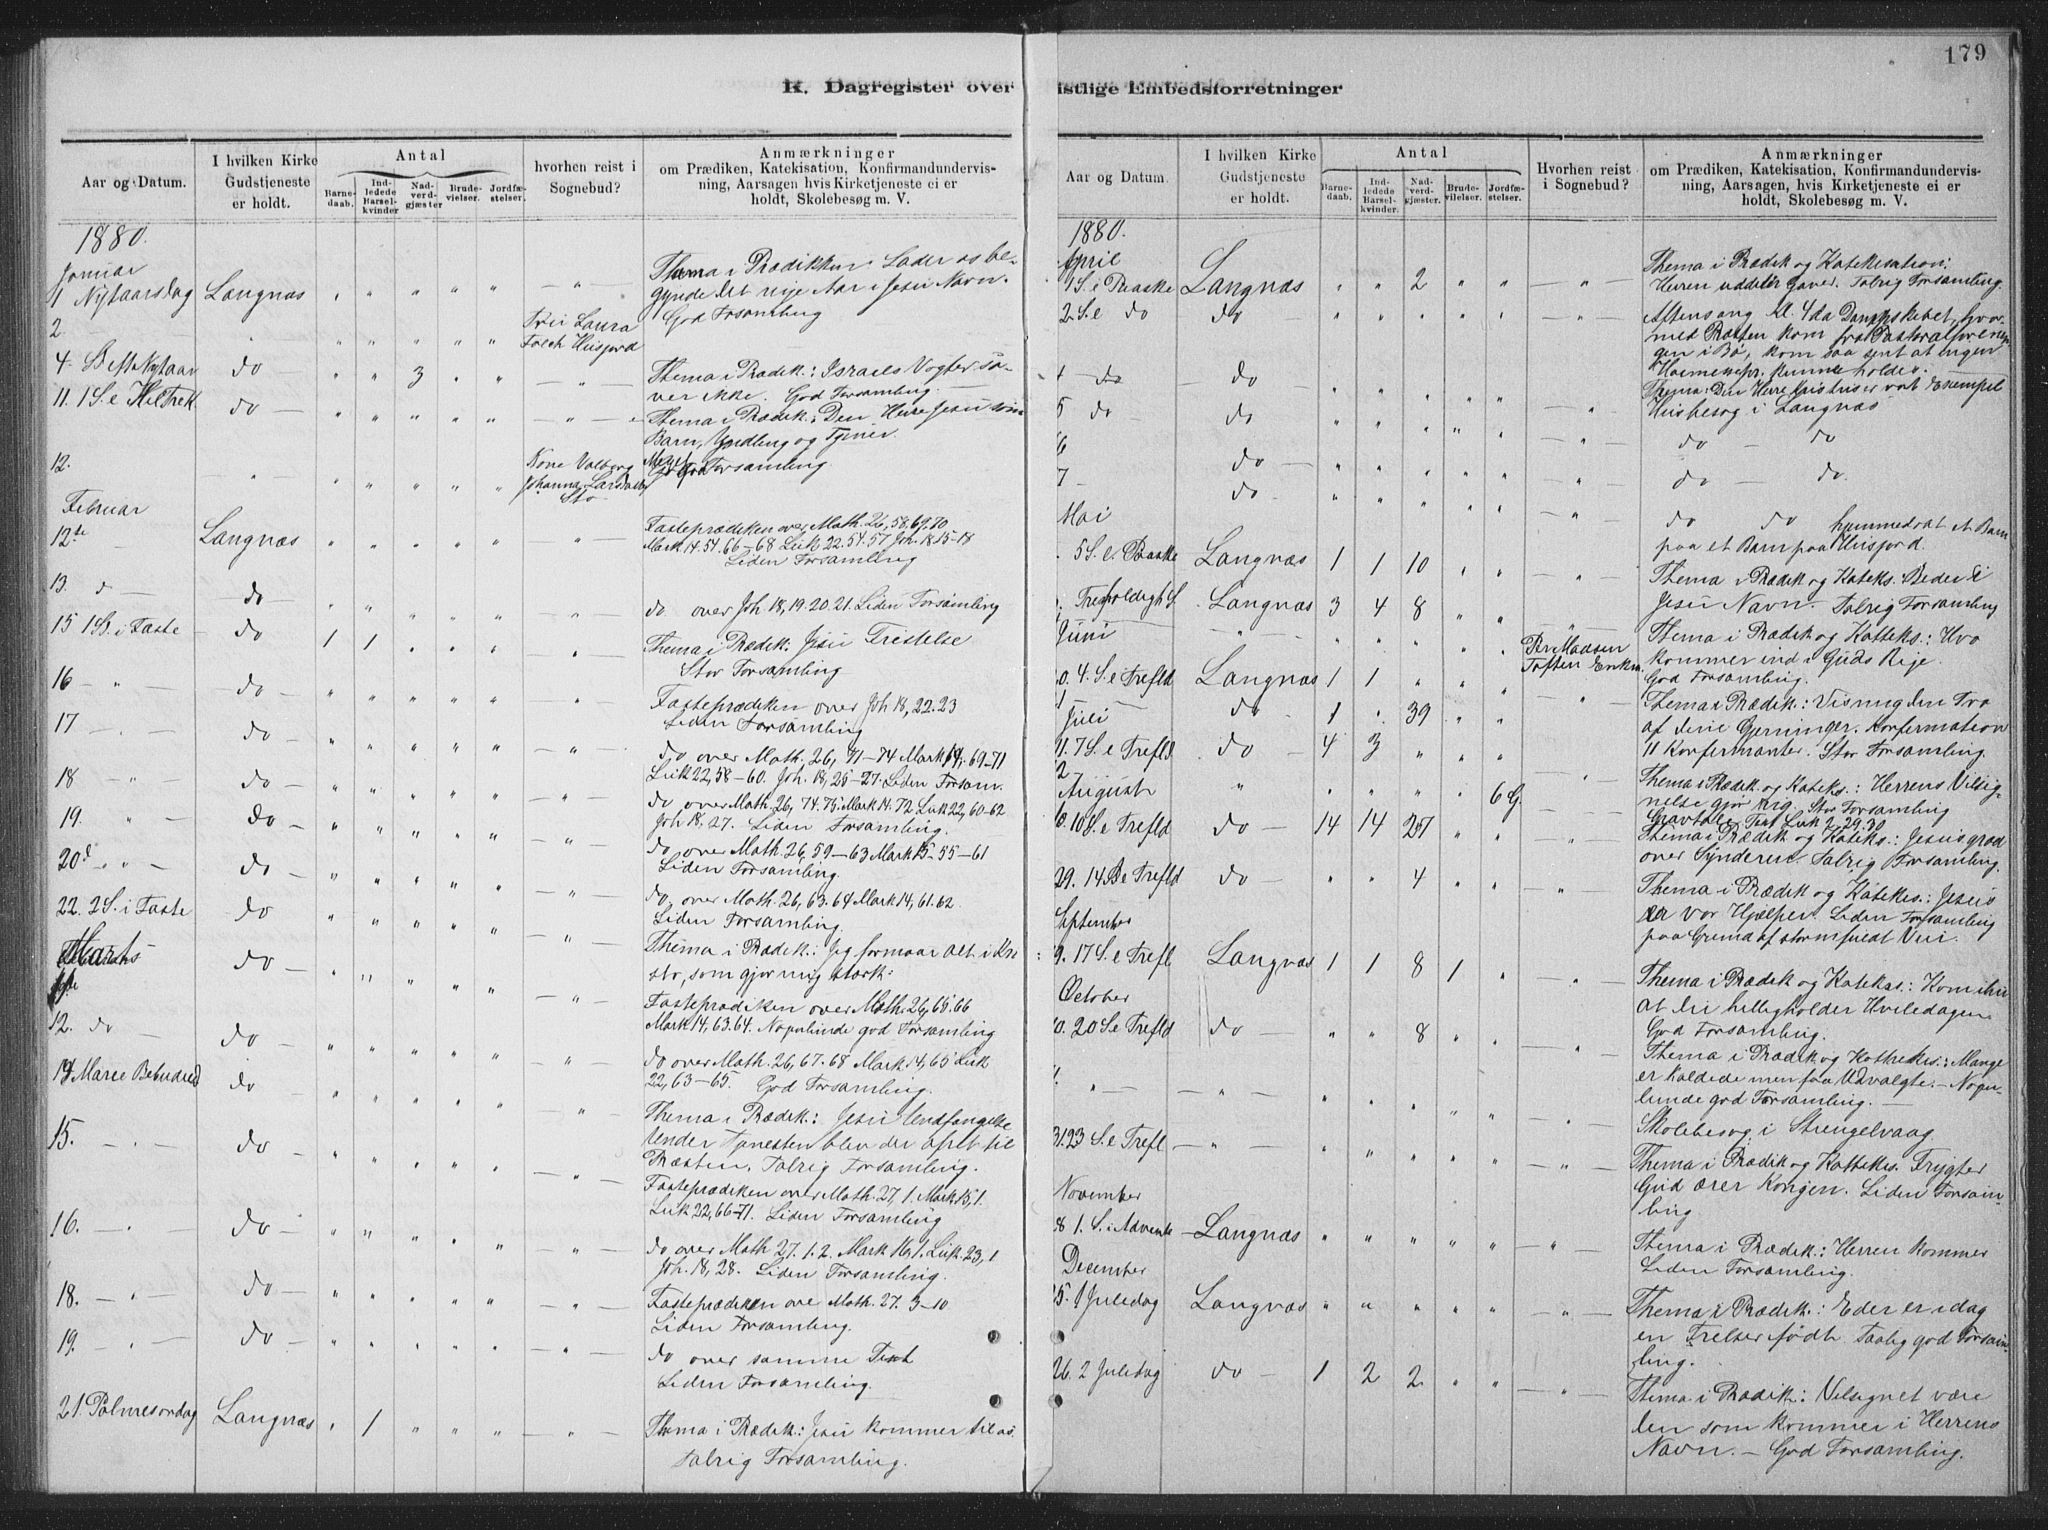 179
K. Dagregister over
istlige Embedsforretninger
Aar og Datum.
I hvilken Kirke
Gudstjeneste
er holdt.
Antal
Barne-
daab.
Ind-
ledede
Barsel-
kvinder
Nad-
verd-
gjæster
Brude-
vielser.
Jordfæ-
stelser.
hvorhen reist i
Sognebud?
Anmærkninger
om Prædiken, Katekisation, Konfirmandundervis-
ning, Aarsagen hvis Kirketjeneste ei er
holdt, Skolebesøg m. V.
1880.
Januar
1 Nytaarsdag Langnæs " " " " " — " — Thema i Prædikken: Lader os be-
gynde det nye Aar i Jesu Navn.
God Forsamling
2 " " " " " Laura
Husjord
4. S efter Nytaar do " " 3 " " — " — Thema i Prædik: Israels Vogter so-
ver ikke. God Forsamling.
11. 1 S. e Hel Trek do " " " " " — " — Thema i Prædik.: Den Herre Jesu som
Barn, Yndling og Tjener.
God Forsamling
12. " " " " " Kone Valborg
Johanna
Stø
Februar
12te Langnæs " " " " " — " — Fasteprædiken over Math. 26, 58, 69, 70
Mark 14. 54. 66—68 Luk 22. 54. 57 Joh. 18 15-18
Liden Forsamling
13. do " " " " " — " — do over Joh 18, 19. 20. 21. Liden Forsamling
15 1 S. i Faste do 1 1 " " " — " — Thema i Prædik: Jesu Fristelse
Stor Forsamling
16 — " — do " " " " " — " — Fasteprædiken over Joh 18, 22. 23
Liden Forsamling
17 — " — do " " " " " — " — do over Math. 26, 71—74 Mark 14, 69-71
Luk 22, 58—60. Joh. 18, 25—27. Liden Forsam.
18 " do — " " " " " — " — do over Math. 26, 74. 75. Mark 14. 72 Luk 22, 60-62
Joh 18, 27. Liden Forsamling.
19. " do — " " " " " — " — do over Math. 26, 59—63 Mark 15-55-61
Liden Forsamling.
20de " " do — " " " " " — " — do, over Math. 26, 63. 64 Mark 14, 61. 62.
Liden Forsamling.
22. 2 S. i Faste do " " " " " — " — Thema i Prædik.: Jeg formaar Alt i Kri
sto, som gjør mig stærk:
Marts
do — " " " " " — " — Fasteprædiken over Math. 26, 65. 66
Mark 14, 63. 64. Nogenlunde god Forsamling
12. do — do — " " " " " — " — do over Math. 26, 67. 68 Mark 14, 65 Luk
22, 63—65. God Forsamling.
14 Marie Bebudelsd do " " " " " — " — Thema i Prædik.: Jesu Undfangelse
under Tjenesten blev der ofret til
Præsten. Talrig Forsamling.
15. — " — do " " " " " — " — Fasteprædiken over Math. 27, 1. Mark 15, 1.
Luk 22, 66-71. Liden Forsamling
16. — " — do — " " " " " — " — do over Math 27. 1. 2. Mark 15, 1. Luk. 23, 1
Joh. 18, 28. Liden Forsamling.
18. — " — do " " " " " — " — Fasteprædiken over Math. 27. 3—10
Liden Forsamling.
19. — " — do — " " " " " — " — do over samme Text
Liden Forsamling.
21. Palmesøndag Langnæs " 1 " " " — " — Thema i Prædik: Jesu kommer til os.
Talrig Forsamling.
Aar og Datum.
I hvilken Kirke
Gudstjeneste
er holdt.
Antal
Barne-
daab.
Ind-
ledede
Barsel-
kvinder.
Nad-
verd-
gjæster.
Brude-
vielser.
Jordfæ-
stelser.
Hvorhen reist
i Sognebud?
Anmærkninger
om Prædiken, Katekisation, Konfirmandundervis-
ning, Aarsagen, hvis Kirketjeneste ei er
holdt, Skolebesøg m. V.
1880.
April
1 S. e Paaske Langnæs " " 2 " " — " — Thema i Prædik og Katekisation:
Herren uddeler Gaver. Talrig Forsamling.
2. S. e do do " " " " " Aftensang Kl. 4 da Dampskibet, hvor
med Præsten kom fra Pastoralforenin
gen i Bø, kom saa sent at ingen
Høimessepr. kunne holdes.
Thema: Den Herre Kristus er vort Exempel
— do — do — " " " " " — " — Husbesøg i Langnæs
5 do do " " " " " — " — do — do
6 do — " " " " " — " — do — do.
7 — do — " " " " " — " — do do
paa et Barn paa Husjord.
Mai
5 S. e. Paaske Langnæs 1 1 10 " " — " — Thema i Prædik og Kateks. Beder i
Jesu Navn. Talrig Forsamling
Trefoldigh S. Langnæs 3 4 8 " " Thema i Prædik og Kateks.: Hvo
kommer ind i Guds Rige.
God Forsamling.
Juni " " " " " " Per Madsen
Toften
0. 4. S. e Trefld Langnæs 1 1 " " " — " — Thema i Prædik.: Vis mig den Tro
af dine Gjerninger. Konfirmation
11 Konfirmanter. Stor Forsamling.
1 do — 1 " 39 " "
Juli
11. 7 S. e Trefld do — 4 3 " " " — " — Thema i Prædik. og Kateks.: Herrens Velsig-
nelse gjør rig. Stor Forsamling
2 " " " " " 6 G. — Gravtale. Text Luk 2. 29. 30
August
0. 10 S. e Trefld do — 14 14 27 " " — " — Thema i Prædik og Kateks.: Jesus græd
over Synderen. Talrig Forsamling.
29. 14 S e Trefld do — " " 4 " " — " — Thema i Prædik og Kateks.: Jesus
er vor Hjælper. Liden Forsamling
paa Grund af stormfuldt Veir.
September
9. 17 S. e Trefl. Langnæs 1 1 8 1 " — " — Thema i Prædik og Kateks.: Kom ihu
at du helligholder Hviledagen
God Forsamling.
October
0. 20 S. e Trefld do — " " 8 " " — " — Thema i Prædik og Kathekis.: Mange
er kaldede men faa Udvalgte. — Nogen-
lunde god Forsamling. —
" — " — " " " " " — " — Skolebesøg i Strengelvaag.
31. 23 S. e Trefl — " — " " " " " — " — Thema i Prædik og Kateks. Frygter
Gud ærer Kongen. Liden Forsam
ling
November
8 1. S. i Advente — Langnæs " " " " " — " — Thema i Prædik.: Herren kommer
Liden Forsamling.
December
5. 1 Juledag Langnæs " " " " " — " — Thema i Prædik.: Eder er idag
en Frelser født. Taalig god Forsam-
ling.
26. 2 Juledag do — 1 2 2 " " — " — Thema i Prædik.: Velsignet være
den som kommer i Herrens
Navn. — God Forsamling.